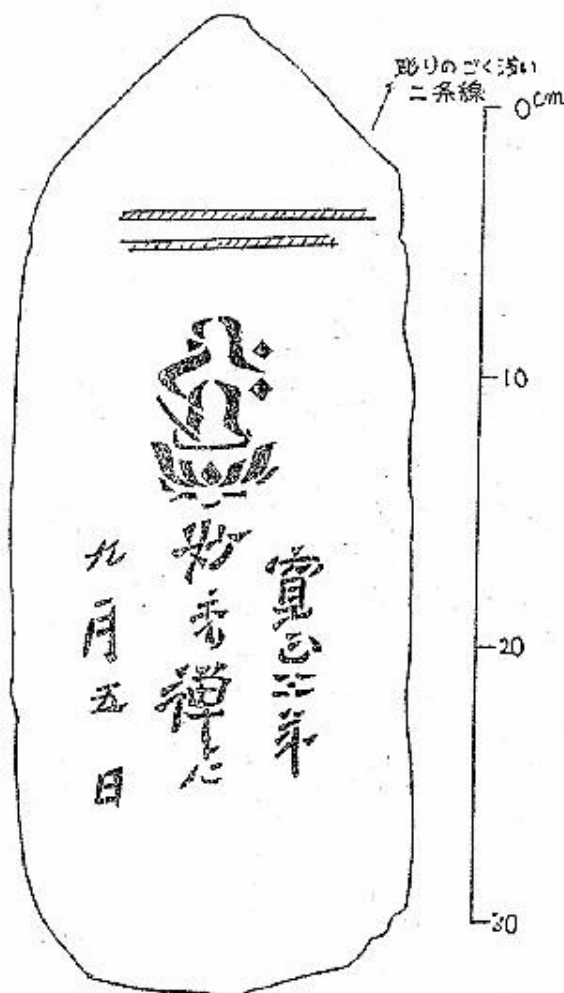 彫りのごく浅い
二条線
0cm
10
20
30
寛正六年
妙香禅尼
九月五日